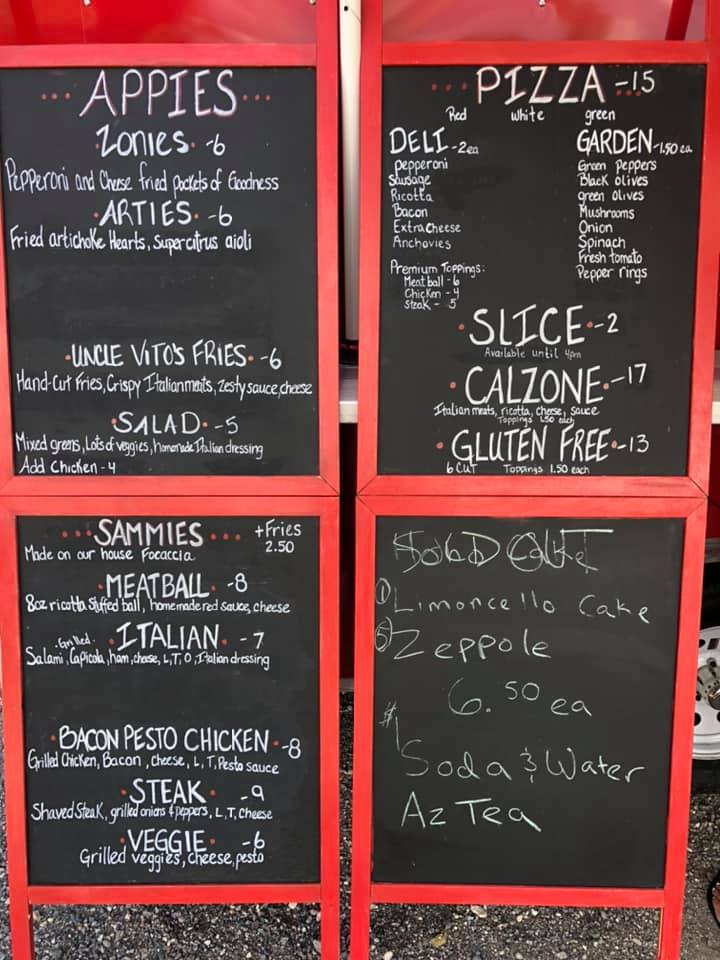 APPIES
Zonies - 6
Pepperoni and Cheese fried pockets of Goodness
ARTIES - 6
Fried artichoke Hearts, Super citrus aioli
UNCLE ViTO'S FRIES - 6
Hand-Cut Fries, Crispy Italian meats, zesty sauce, cheese
SALAD - 5
Mixed greens, Lots of veggies, homemade Italian dressing
Add Chicken - 4
PIZZA - 15
Red white green
DELI - 2 ea
pepperoni
Sausage
Ricotta
Bacon
Extra cheese
Anchovies
Premium Toppings:
Meatball - 6
Chicken - 4
Steak - 5
GARDEN - 1.50 ea
Green Peppers
Black olives
green olives
Mushrooms
Onion
Spinach
Fresh tomato
Pepper rings
SLICE - 2
Available until 4pm
CALZONE - 17
Italian meats, ricotta, cheese, sauce
Toppings 1.50 each
GLUTEN FREE - 13
6 CUT Toppings 1.50 each
SAMMIES + Fries 2.50
Made on our house Focaccia
MEATBALL - 8
8oz ricotta stuffed ball, homemade red sauce, cheese
Grilled ITALIAN - 7
Salami, Capicola, ham, cheese, L, T, O, Italian dressing
BACON PESTO CHICKEN - 8
Grilled Chicken, Bacon, cheese, L, T, Pesto sauce
STEAK - 9
Shaved Steak, grilled onions & peppers, L, T, Cheese
VEGGIE - 6
Grilled veggies, cheese, pesto
SOLD OUT
① Limoncello Cake
⑤ Zeppole
6.50 ea
$1
Soda & Water
Az Tea